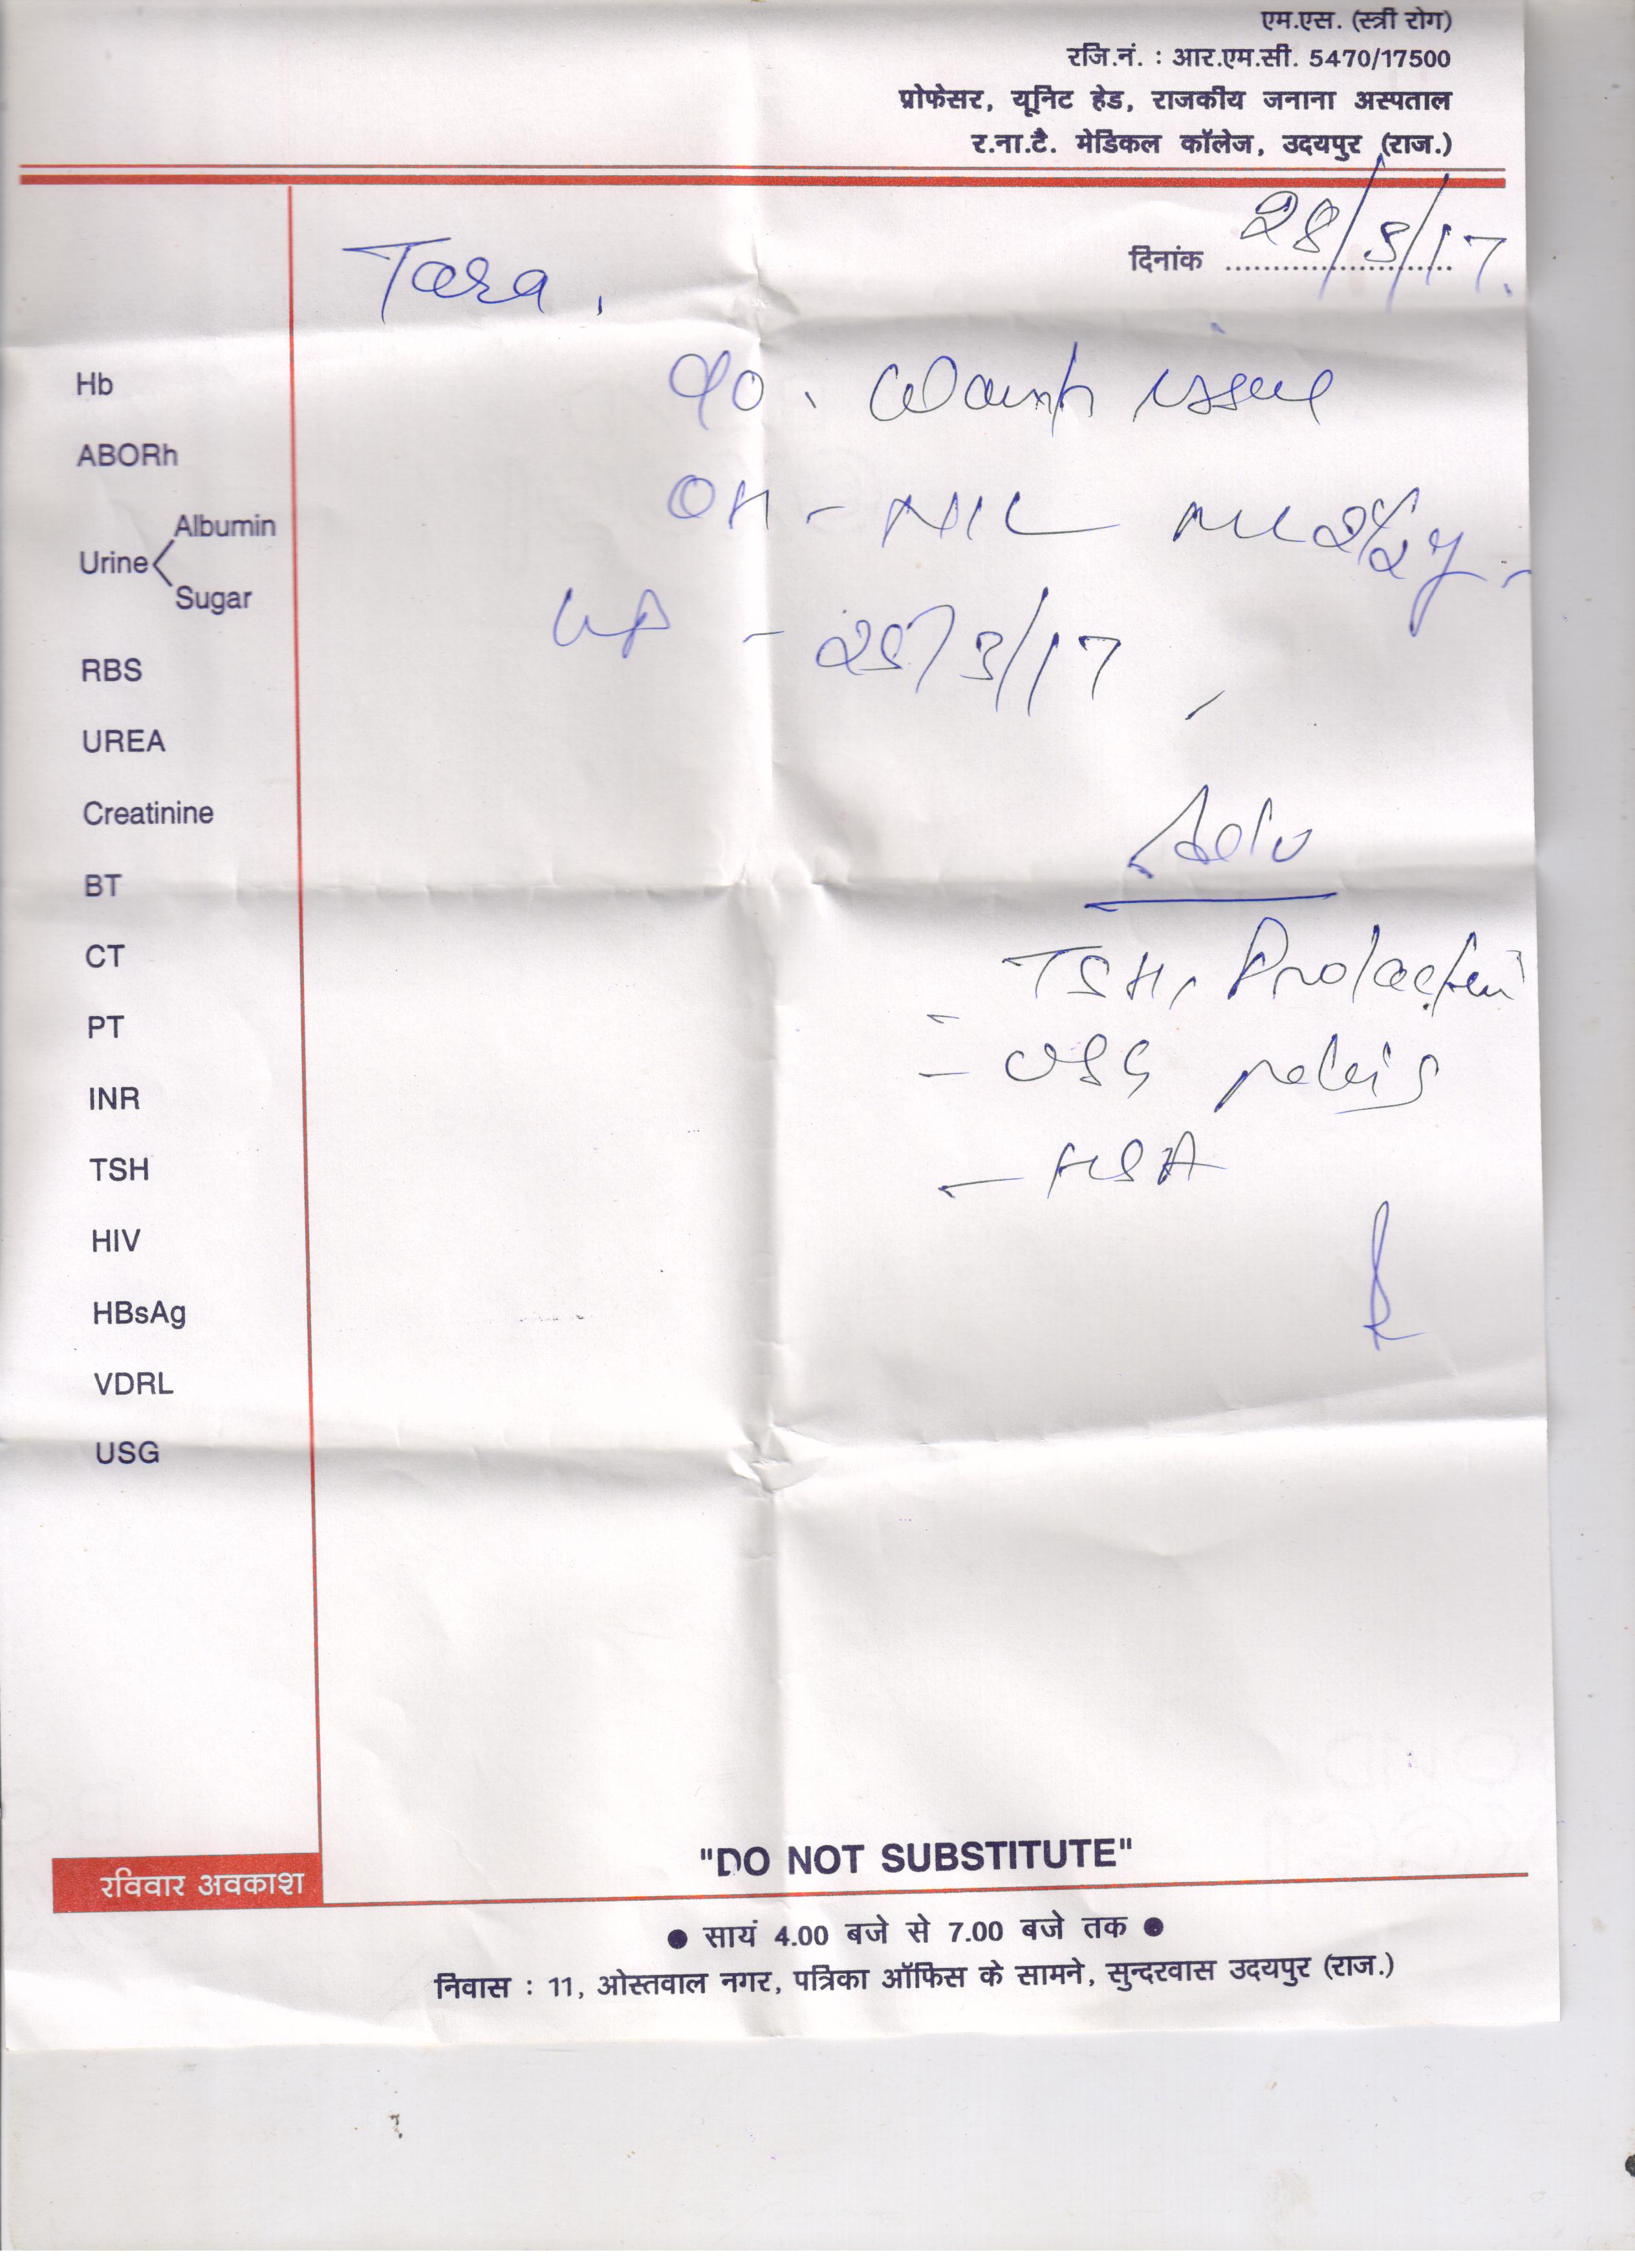 एम.एस. (स्त्री रोग)
रजि.नं. : आर.एम.सी. 5470/17500
प्रोफेसर, यूनिट हेड, राजकीय जनाना अस्पताल
र.ना.टै. मेडिकल कॉलेज, उदयपुर (राज.)
दिनांक 28/3/17.
Tara.
Hb
ABORh
Urine
Albumin
Sugar
RBS
UREA
Creatinine
BT
CT
PT
INR
TSH
HIV
HBsAg
VDRL
USG
issue
OH - NIL
- 25/3/17
Adv
TSH, Prolactin
- USG pelvis
- HSA
"DO NOT SUBSTITUTE"
रविवार अवकाश
● सायं 4.00 बजे से 7.00 बजे तक ●
निवास : 11, ओस्तवाल नगर, पत्रिका ऑफिस के सामने, सुन्दरवास उदयपुर (राज.)